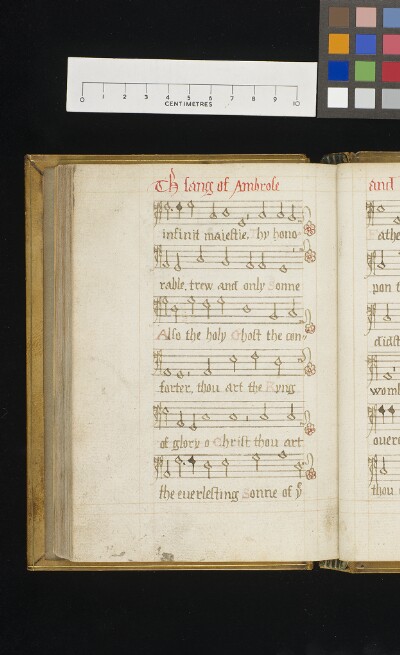 0 1 2 3 4 5 6 7 8 9 10
CENTIMETRES
Th sang of Ambrose
infinit maiestie. Thy hono-
rable, trew and only Sonne
Also the holy Ghost the con-
forter, thou art the Kyng
of glory o Christ thou art
the euerlesting Sonne of yͤ
and
Fathe
pon t
didst
womb
ouerc
thou